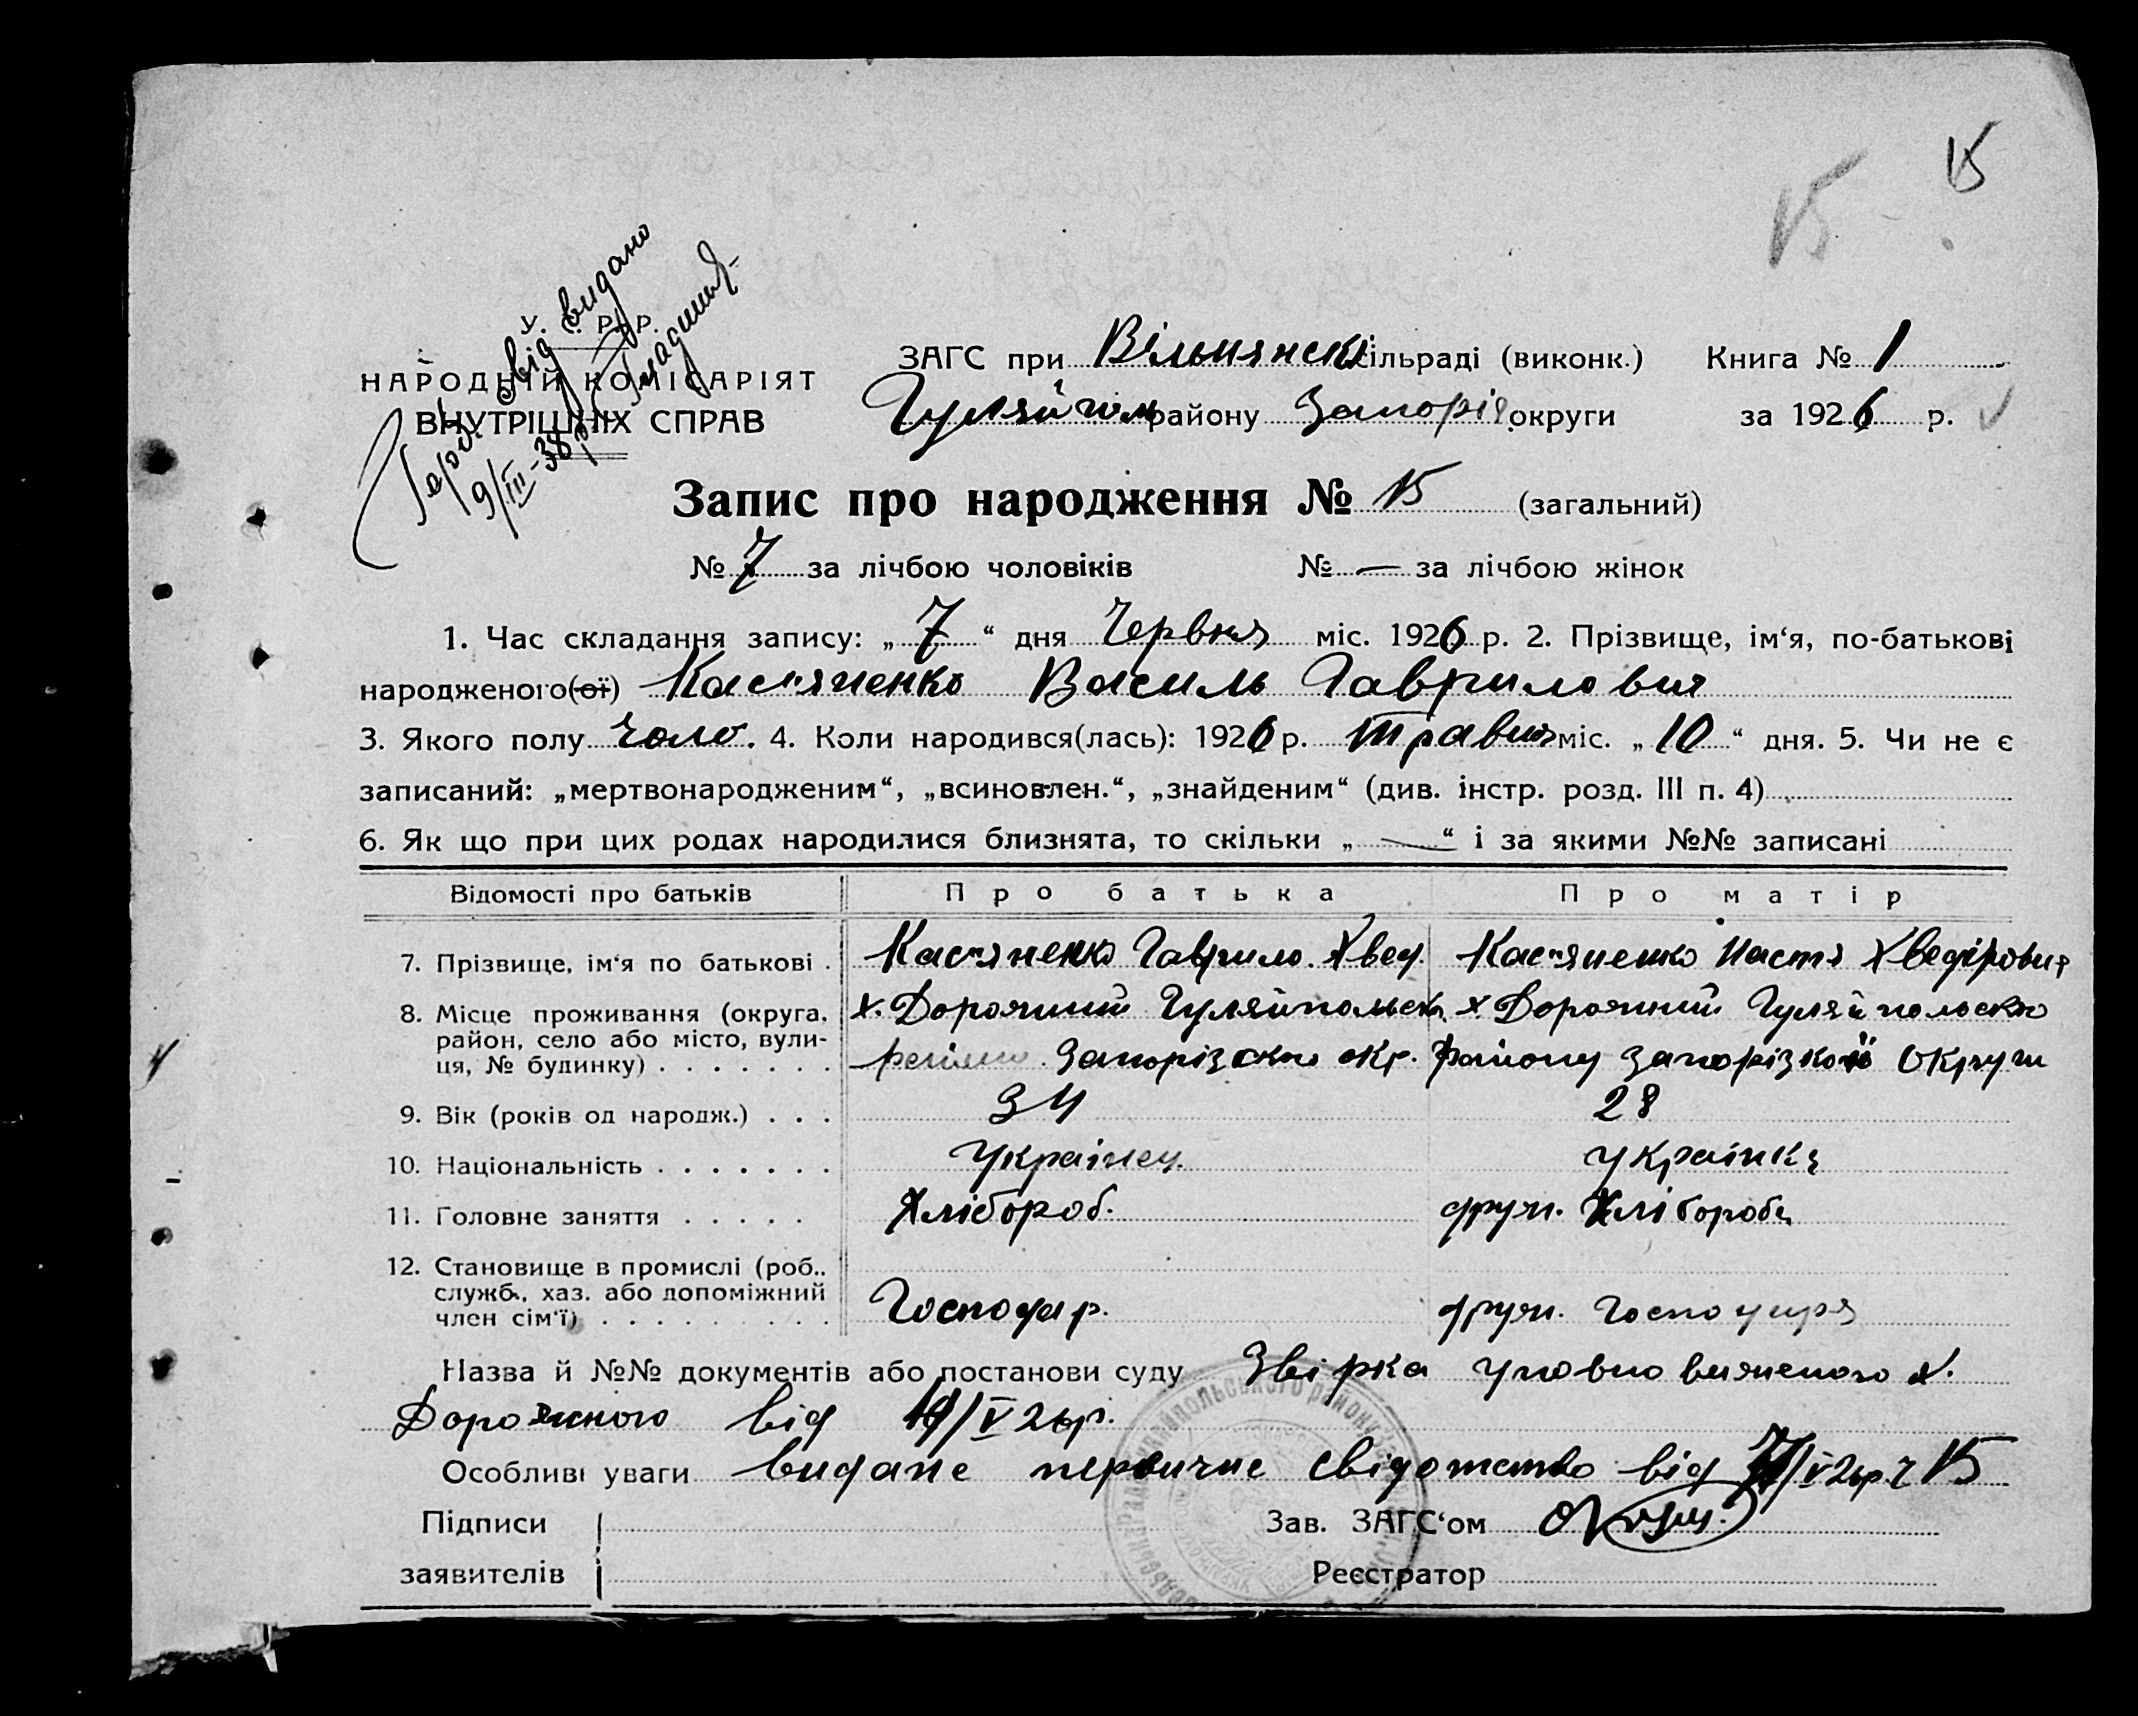 15
15
Повт. свід видано
9/III-38р.
У. С. Р. Р.
НАРОДНІЙ КОМІСАРІЯТ
ВНУТРІШНІХ СПРАВ
ЗАГС при Вільнянскі сільраді (виконк.) Книга № 1
Гуляйпол району Запоріз округи за 1926 р.
Запис про народження № 15 (загальний)
№ 7 за лічбою чоловіків № — за лічбою жінок
1. Час складання запису: „ 7 “ дня Червня міс. 1926 р. 2. Прізвище, ім‘я, по-батькові
народженого(ої) Кас"яненко Василь Гаврилович
3. Якого полу чоло. 4. Коли народився(лась): 1926 р. травня міс. „ 10 “ дня. 5. Чи не є
записаний: „мертвонародженим“, „всиновлен.“, „знайденим“ (див. інстр. розд. III п. 4)
6. Як що при цих родах народилися близнята, то скільки „ — “ і за якими №№ записані
Відомості про батьків Про батька Про матір
7. Прізвище, ім‘я по батькові . Кас"яненко Гаврило. Хвед. Кас"яненко Настя Хведіровня
8. Місце проживання (округа, х. Дорожний Гуляйпольск х. Дорожний Гуляйпольского
район, село або місто, вули-
ця, № будинку) . . . . . . . району Запорізской Округи
Запорізскои окр.
9. Вік (років од народж.) . . . 34 28
10. Національність . . . . . . . Українец українка
11. Головне заняття . . . . . Хлібороб. друж. Хлібороба
12. Становище в промислі (роб.,
служб., хаз. або допоміжний
член сім‘ї) . . . . . . . . . Господар. друж. Господаря
Назва й №№ документів або постанови суду Звірка уповноваженого х.
Дорожного від 19/V 26р.
Особливі уваги видане первичне свідотство від V 26р. ч 15
Підписи Зав. ЗАГС‘ом
заявителів Реєстратор